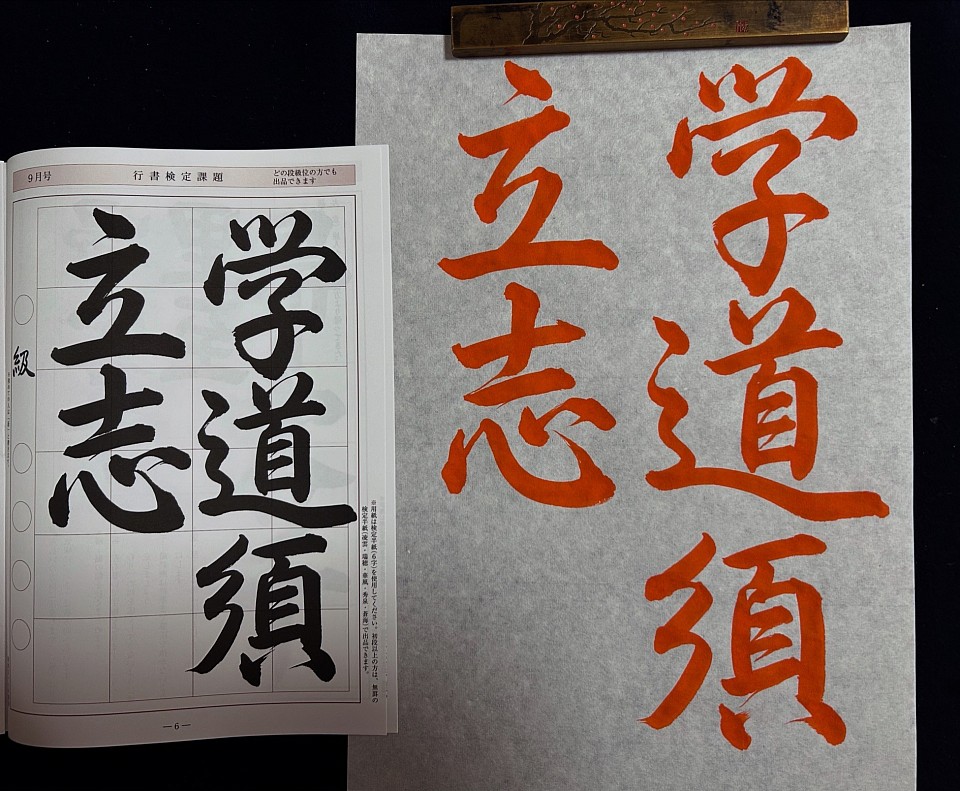 9月号
行書検定課題
どの段級位の方でも
出品できます
学道須
立志
級
※用紙は検定半紙(6字)を使用してください。初段以上の方は、無罫の
検定半紙(蔵雲・瑞穂・亜風・秀泉・蒼海)で出品できます。
— 6 —
学道須
立志